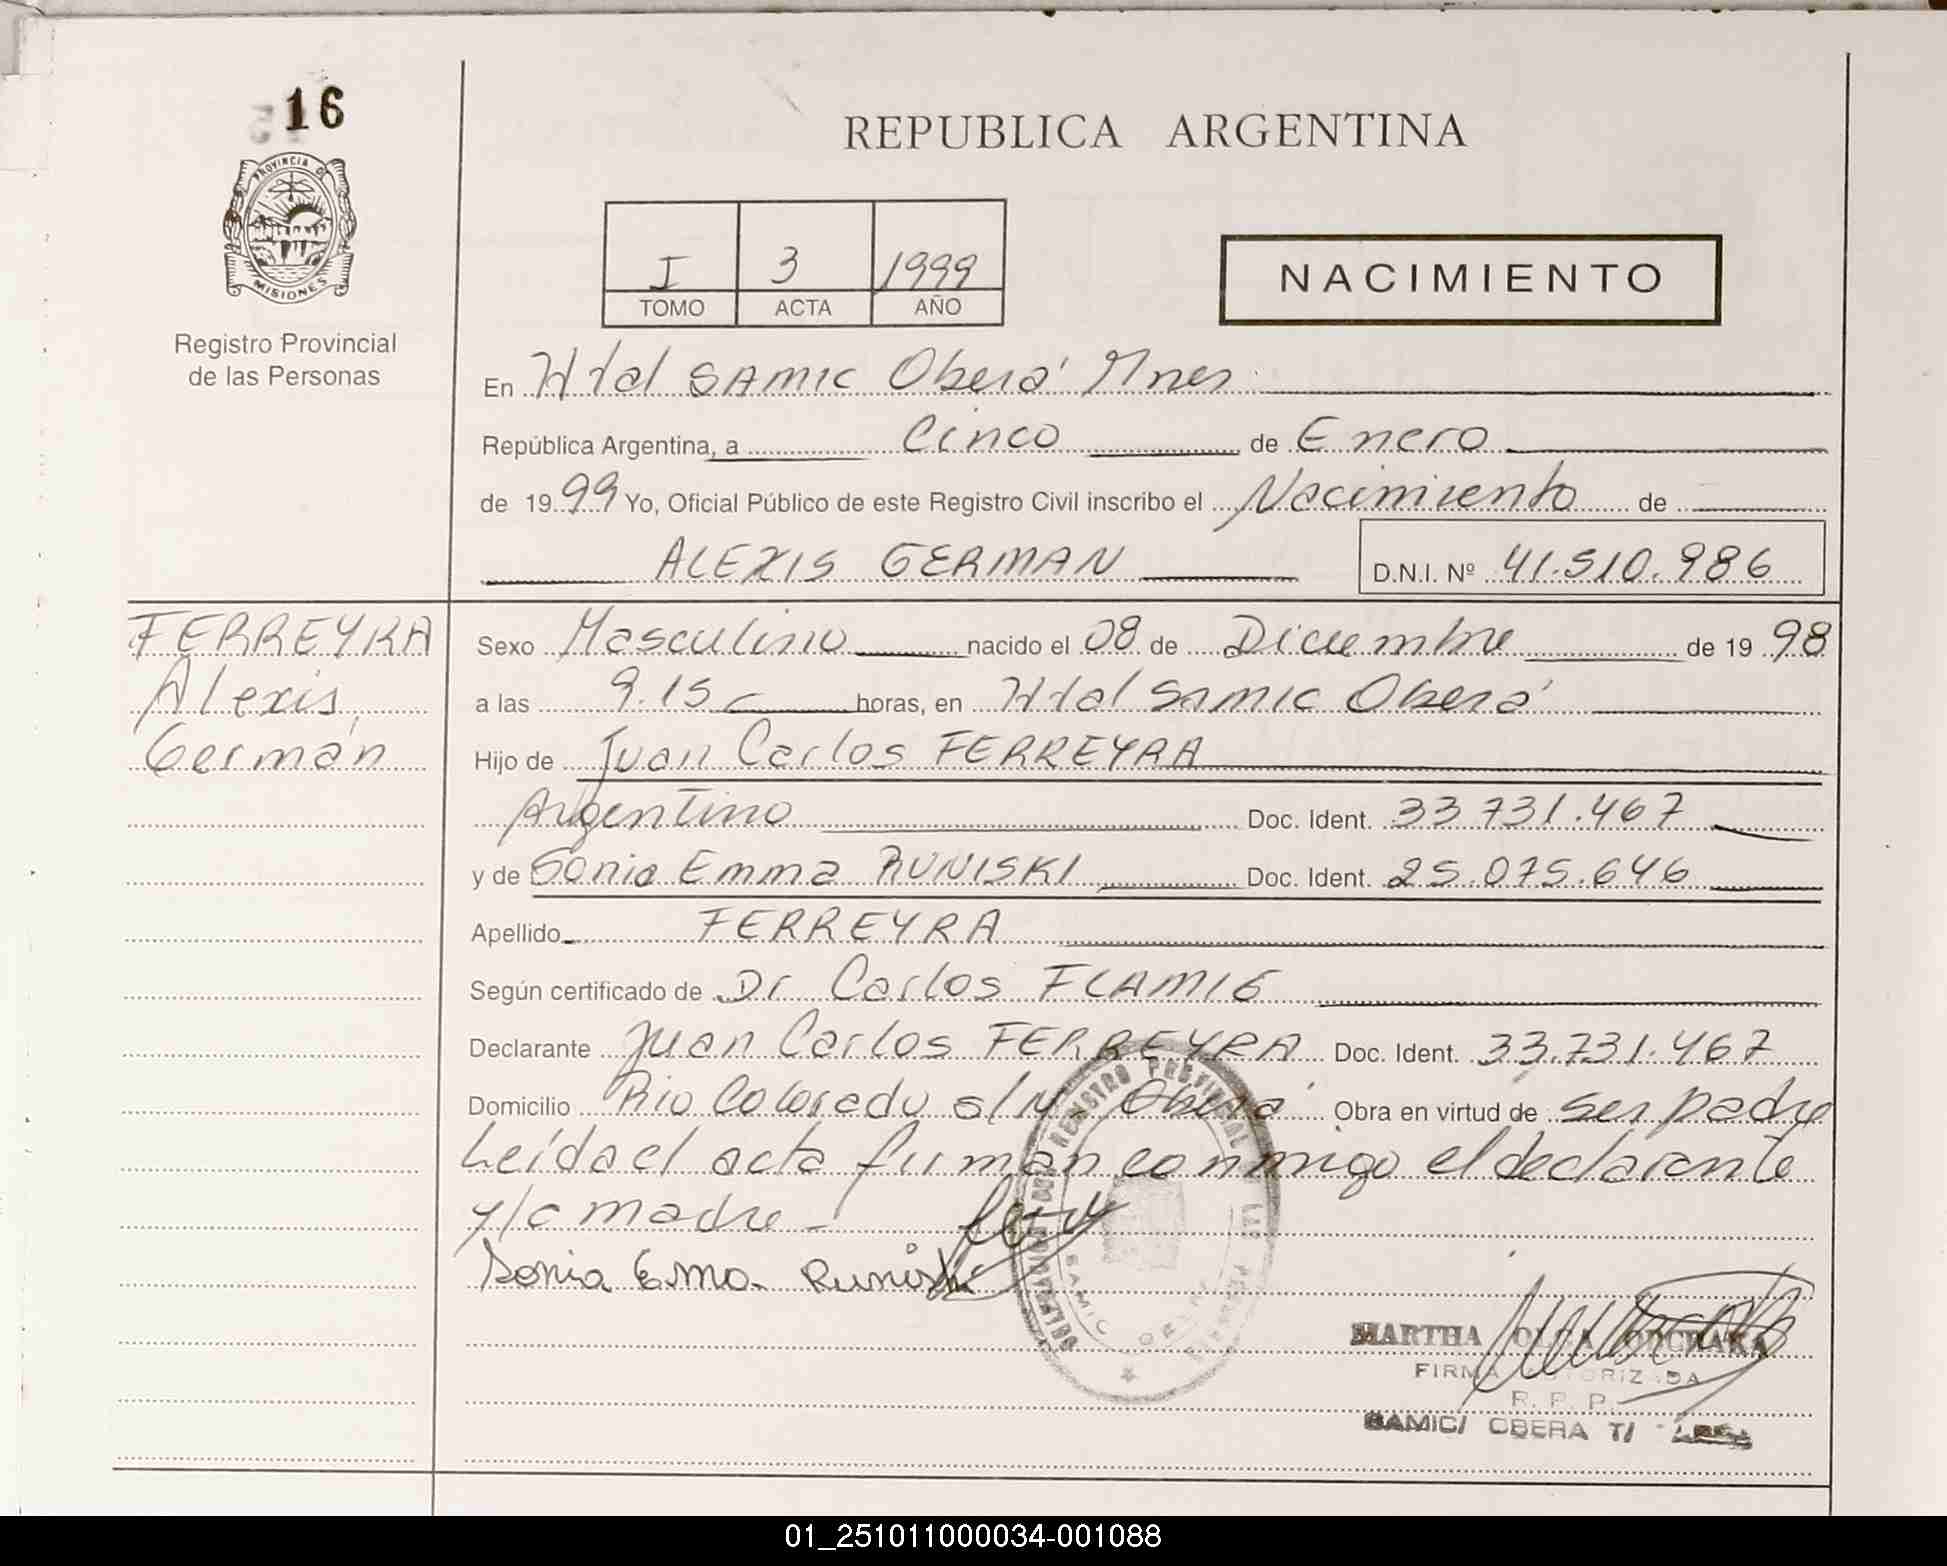 16
PROVINCIA D
MISIONES
Registro Provincial
de las Personas
REPUBLICA ARGENTINA
I 3 1999
TOMO ACTA AÑO
NACIMIENTO
En Htal SAMIC Oberá Mnes
República Argentina, a Cinco de Enero
de 1999 Yo, Oficial Público de este Registro Civil inscribo el Nacimiento de
ALEXIS GERMAN D.N.I. Nº 41.510.986
FERREYRA
Alexis
Germán
Sexo Masculino nacido el 08 de Diciembre de 1998
a las 9.15 horas, en Htal SAMIC Oberá
Hijo de Juan Carlos FERREYRA
Argentino Doc. Ident. 33.731.467
y de Sonia Emma RUNISKI Doc. Ident. 25.075.646
Apellido FERREYRA
Según certificado de Dr Carlos FLAMIG
Declarante Juan Carlos FERREYRA Doc. Ident. 33.731.467
Domicilio Rio Colorado s/N Oberá Obra en virtud de ser padre
Leída el acta firman conmigo el declarante
y/o madre -
Sonia Ema Runiski
SAMIC OBERA
MARTHA OLGA
FIRMA AUTORIZADA
R. P. P.
SAMIC/ OBERA T/
01_251011000034-001088